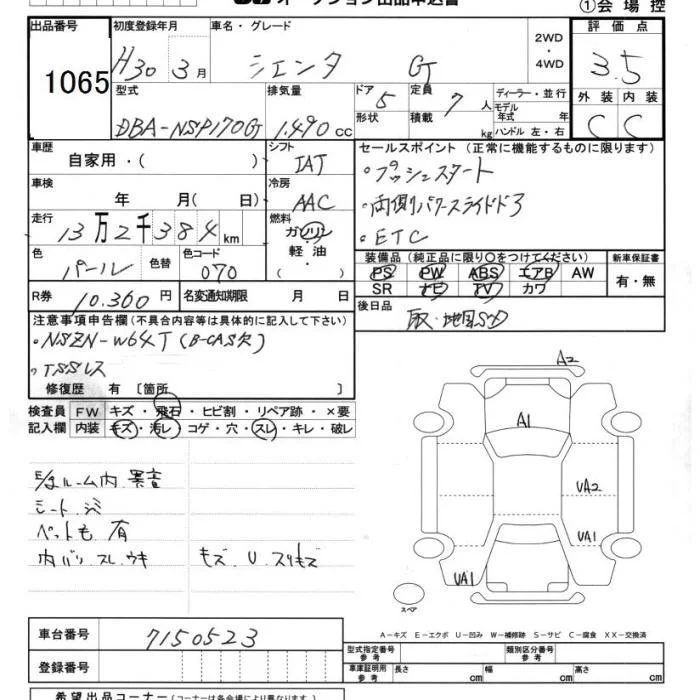 オークション出品申込書
①会場控
出品番号
1065
初度登録年月
H30 3月
車名・グレード
シエンタ G
2WD
・
4WD
評価点
3.5
外装 内装
C C
型式
DBA-NSP170G
排気量
1.490 cc
ドア 5
形状
定員 7 人
積載 kg
ディーラー・並行
モデル年式 年
ハンドル 左・右
車歴
自家用・( )
シフト
IAT
セールスポイント (正常に機能するものに限ります)
・プッシュスタート
・両側パワースライドドア
・ETC
車検
年 月( 日)
冷房
AAC
走行
13万2千384km
燃料
ガソリン
軽・油
( )
色
パール
色替
色コード
070
装備品 (純正品に限り○をつけてください)
PS PW ABS エアB AW
SR ナビ TV カワ
新車保証書
有・無
R券
10.360円
名変通知期限 月 日
後日品
取・地図SD
注意事項申告欄(不具合内容等は具体的に記入して下さい)
・NSZN-W64T (B-CAS欠)
・TSSレス
修復歴 有 〔箇所 〕
検査員 FW キズ・飛石・ヒビ割・リペア跡・×要
記入欄 内装 キズ・汚レ・コゲ・穴・スレ・キレ・破レ
ルーム内 異音
シート シミ
ペット毛 有
内バリ スレ ウキ キズ U スリキズ
A2
A1
UA2
UA1
UA1
スペア
A-キズ E-エクボ U-凹み W-補修跡 S-サビ C-腐食 XX-交換済
車台番号
7150523
登録番号
型式指定番号 参考
類別区分番号 参考
車庫証明用 参考 長さ cm 幅 cm 高さ cm
希望出品コーナー(コーナーは各会場により異なります)